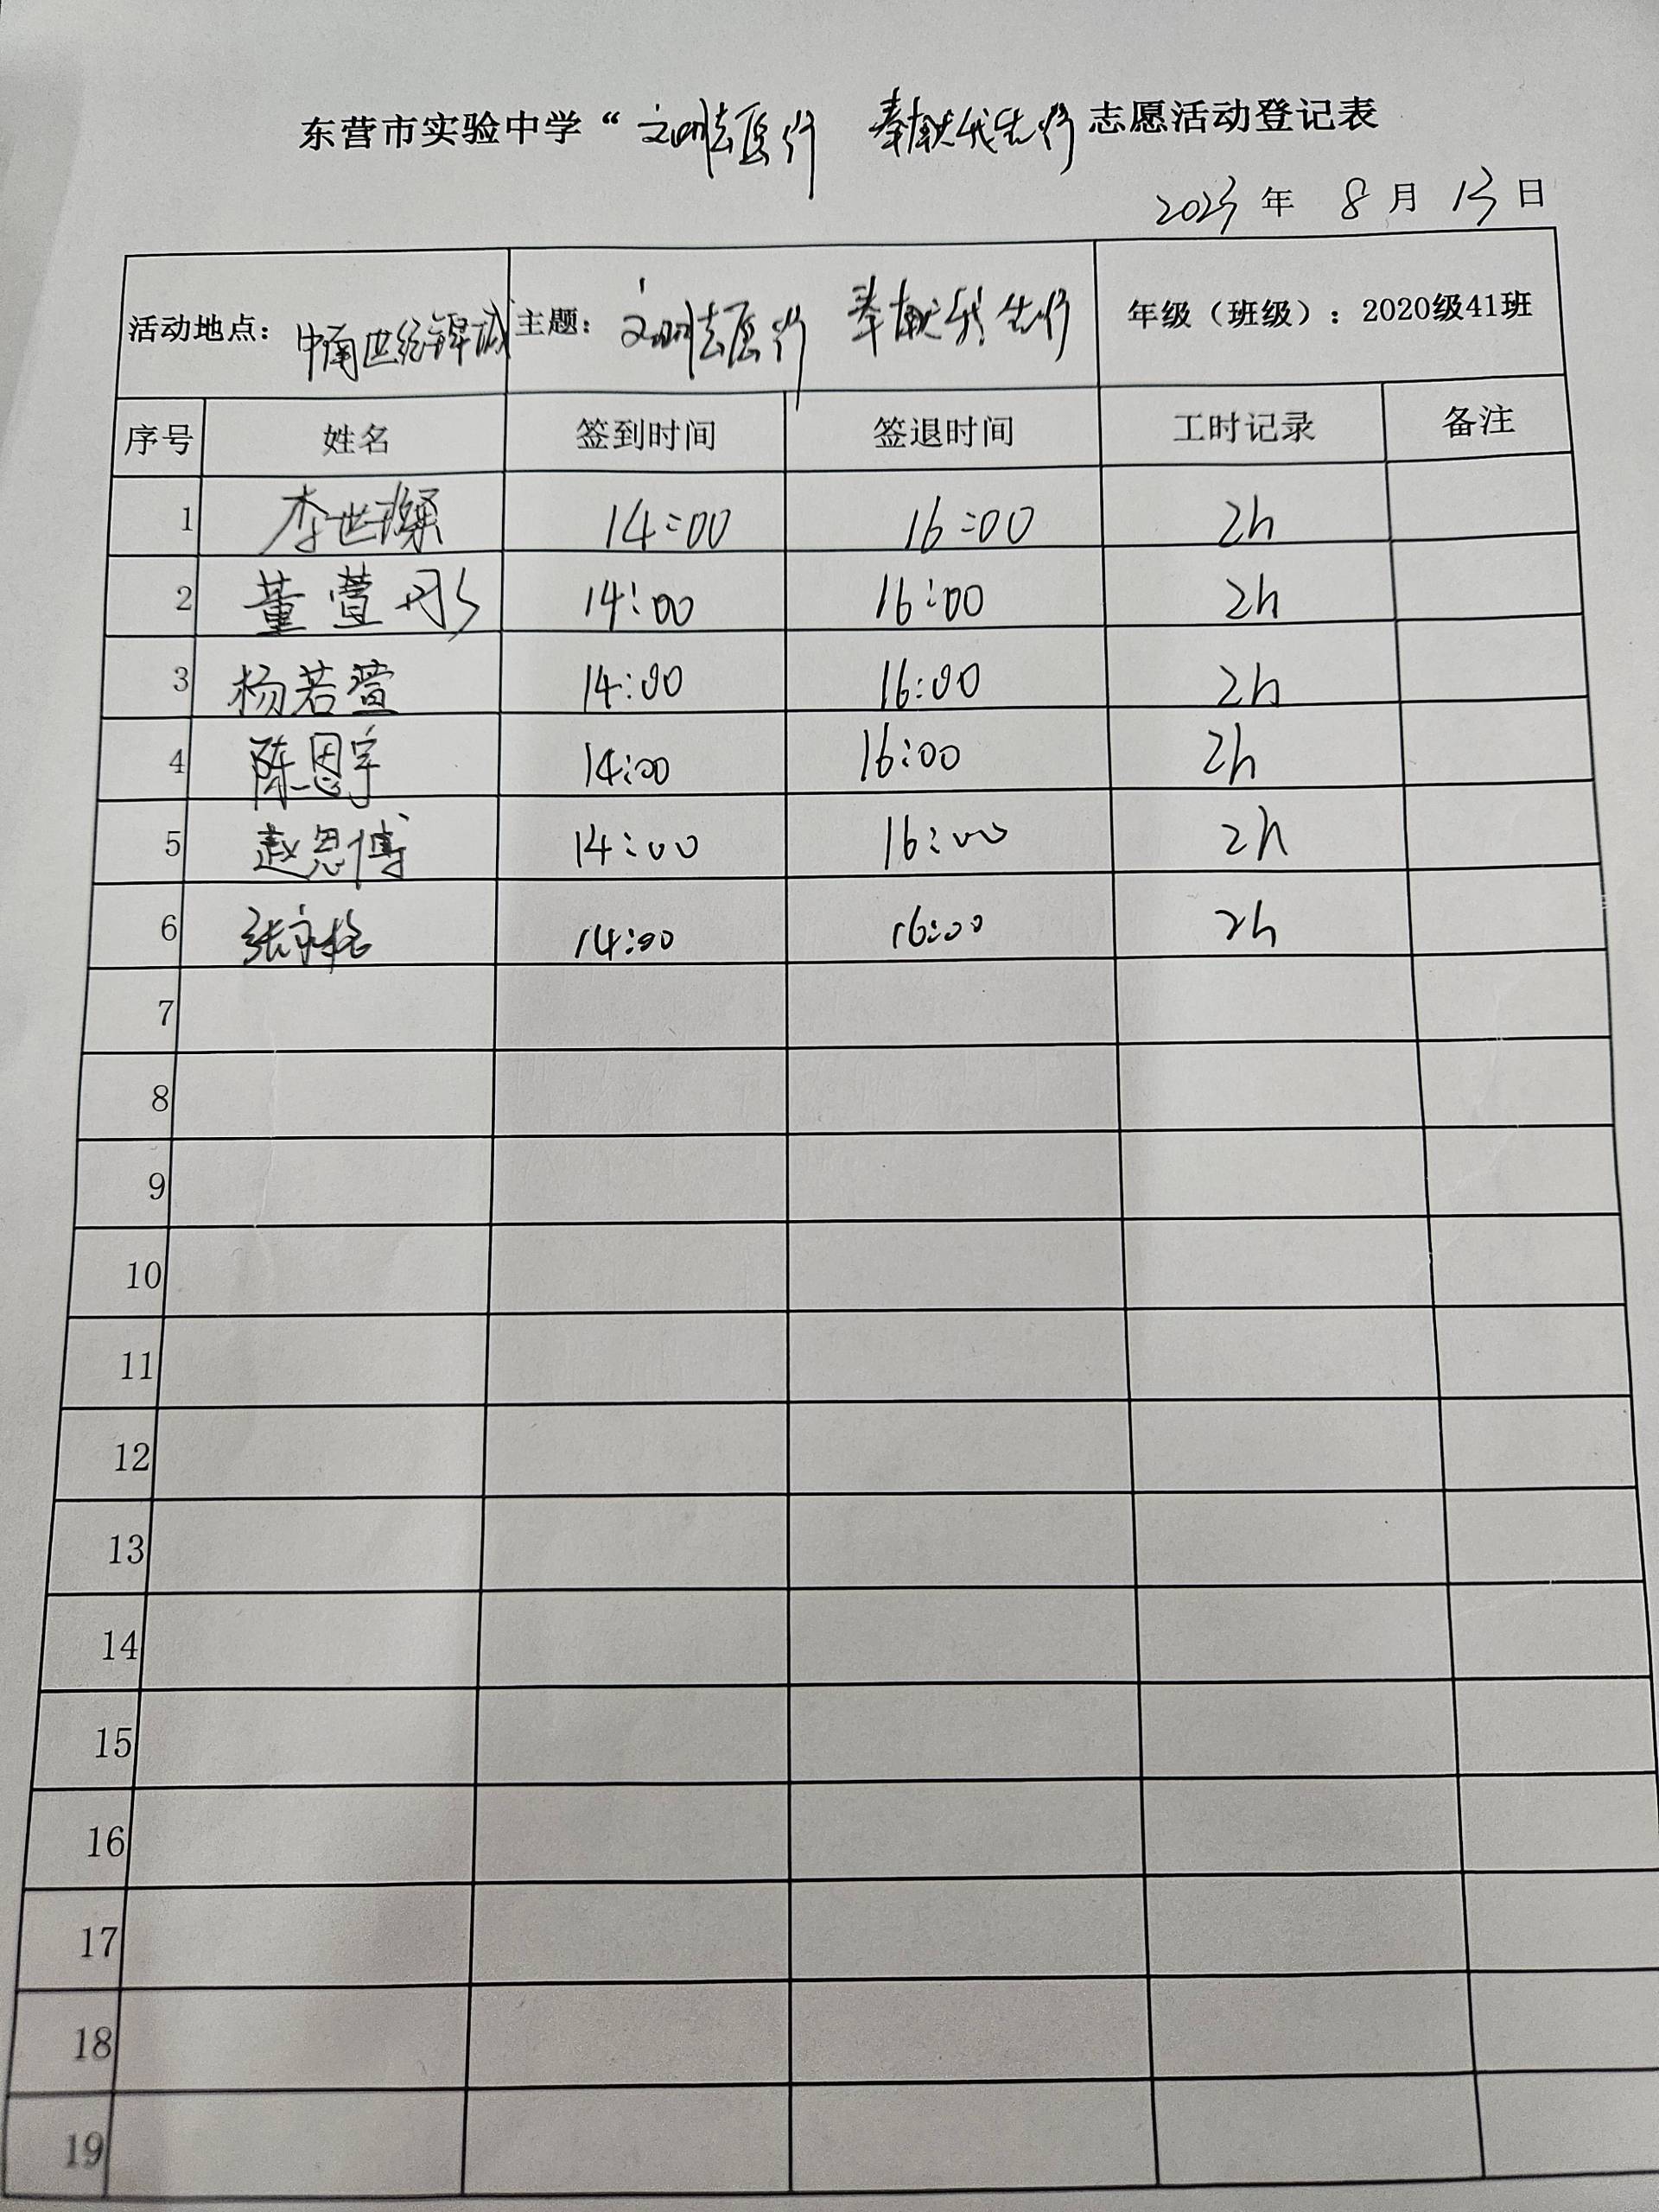 东营市实验中学“文明志愿行 奉献我先行志愿活动登记表
2023年 8月 13日
活动地点：中南世纪锦城 主题：文明志愿行 奉献我先行 年级（班级）：2020级41班
序号 姓名 签到时间 签退时间 工时记录 备注
1 李世璨 14:00 16:00 2h
2 董萱彤 14:00 16:00 2h
3 杨若萱 14:00 16:00 2h
4 陈恩宇 14:00 16:00 2h
5 赵思博 14:00 16:00 2h
6 张 14:00 16:00 2h
7
8
9
10
11
12
13
14
15
16
17
18
19